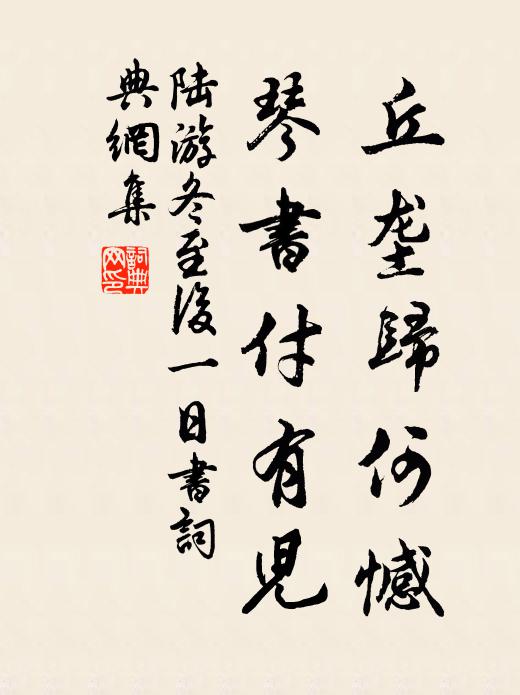 丘垄歸何憾
琴書付有兒
陆游冬至後一日書詞
典網集
詞典網印